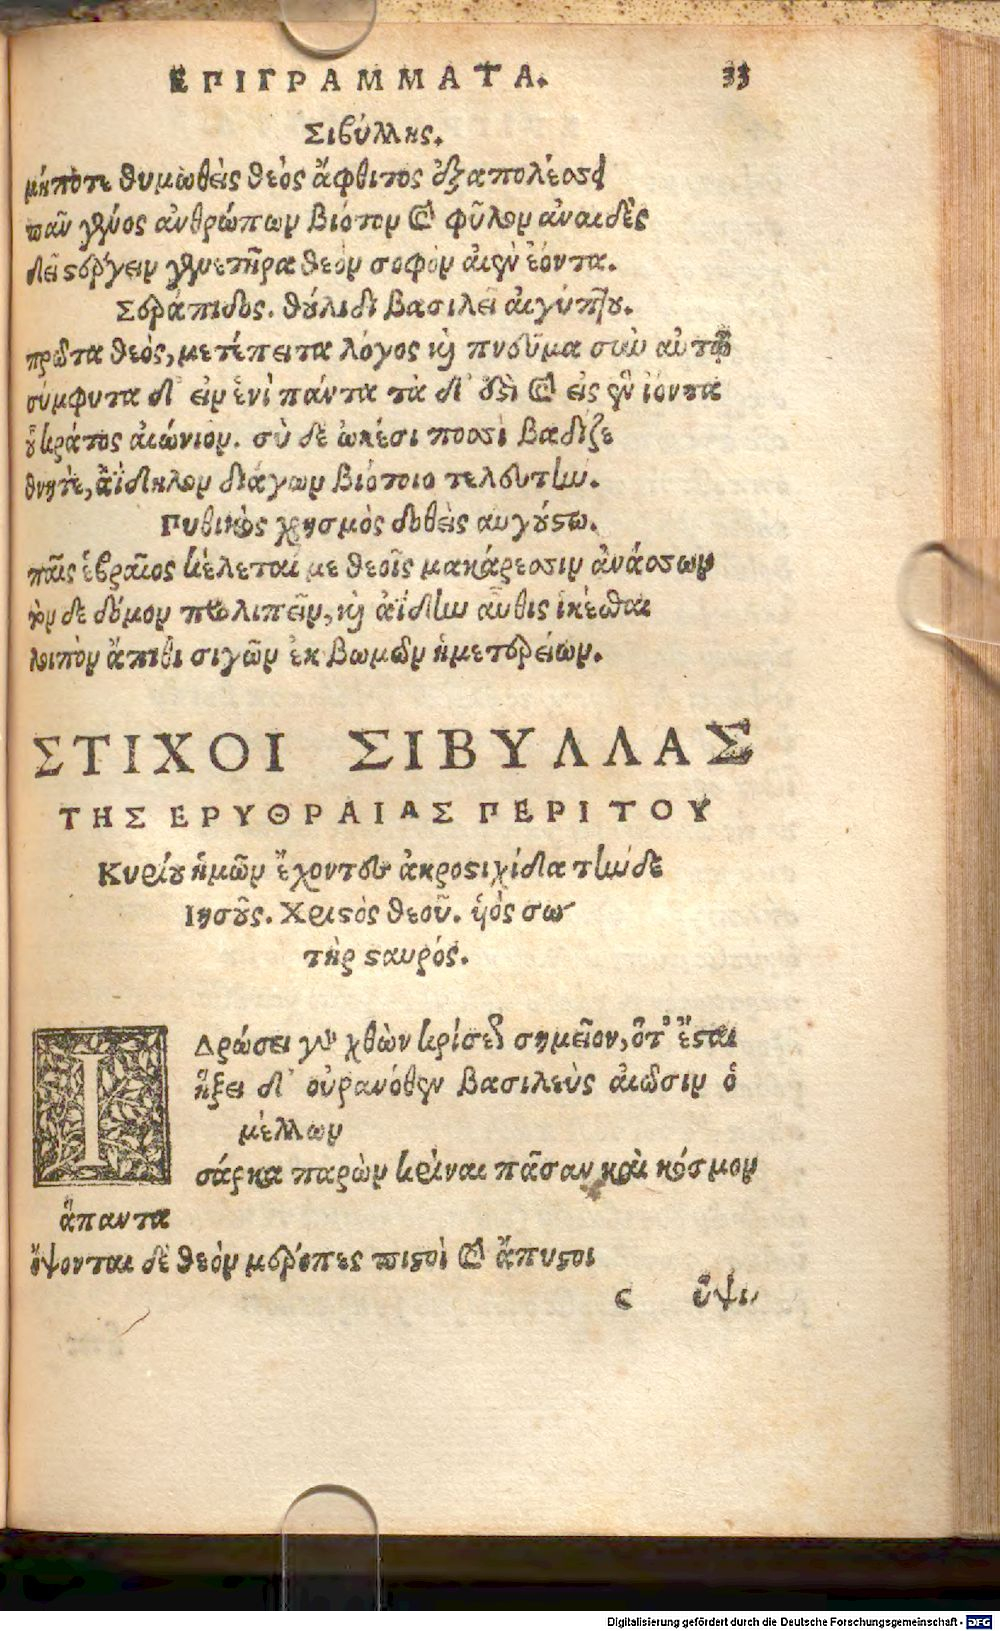 ΕΠΙΓΡΑΜΜΑΤΑ. 33
Σιβύλλης.
μήποτε θυμωθεὶς θεὸς ἄφθιτος ἐξαπολέσσῃ
πᾶν γένος ἀνθρώπων βίοτον καὶ φῦλον ἀναιδὲς
δεῖ στέργειν γενετῆρα θεὸν σοφὸν αἰὲν ἐόντα.
Σεράπιδος. θούλιδι βασιλεῖ αἰγύπτου.
πρῶτα θεὸς, μετέπειτα λόγος καὶ πνεῦμα σὺν αὐτῷ
σύμφυτα δ' εἰν ἑνὶ πάντα τὰ δ' ἐστὶ καὶ εἰς ἓν ἰόντα
οὗ κράτος αἰώνιον. σὺ δὲ ὠκέσι ποσσὶ βαδίζε
θνητὲ, ἀΐδηλον διάγων βιότοιο τελευτὴν.
Πυθικὸς χρησμὸς δοθεὶς αυγούστω.
παῖς ἑβραῖος κέλεταί με θεοῖς μακάρεσσιν ἀνάσσων
τὸν δε δόμον προλιπεῖν, καὶ ἀΐδην αὖθις ἱκέσθαι
λοιπὸν ἄπιθι σιγῶν ἐκ βωμῶν ἡμετερείων.
ΣΤΙΧΟΙ ΣΙΒΥΛΛΑΣ
ΤΗΣ ΕΡΥΘΡΑΙΑΣ ΠΕΡΙ ΤΟΥ
Κυρίου ἡμῶν ἔχοντες ἀκροστιχίδα τὴνδε
Ιησοῦς. Χριστὸς θεοῦ. υἱὸς σω
τὴρ σταυρός.
Ιδρώσει γὰρ χθὼν κρίσεως σημεῖον, ὅτ' ἔσται
ἥξει δ' οὐρανόθεν βασιλεὺς αἰῶσιν ὁ
μέλλων
σάρκα παρὼν κρίναι πᾶσαν καὶ κόσμον
ἅπαντα
ὄψονται δὲ θεὸν μέροπες πιστοὶ καὶ ἄπιστοι
c ὕψι
Digitalisierung gefördert durch die Deutsche Forschungsgemeinschaft - DFG